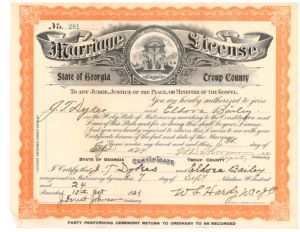 No. 281
Marriage License
State of Georgia Troup County
TO ANY JUDGE, JUSTICE OF THE PEACE, OR MINISTER OF THE GOSPEL.
You are hereby authorized to join
J. T. Dykes and Eldora Bailey
in the Holy State of Matrimony according to the Constitution and
Laws of this State and for so doing this shall be your License.
And you are hereby required to return this License to me with your
Certificate hereon of the fact and date of the Marriage.
Given under my hand and seal this
STATE OF GEORGIA Certificate TROUP COUNTY
I Certify that J. T. Dykes and Eldora Bailey
were joined in Matrimony by me this day of Sept Nineteen Hundred
and 24
Recorded Oct 1924
PARTY PERFORMING CEREMONY RETURN TO ORDINARY TO BE RECORDED